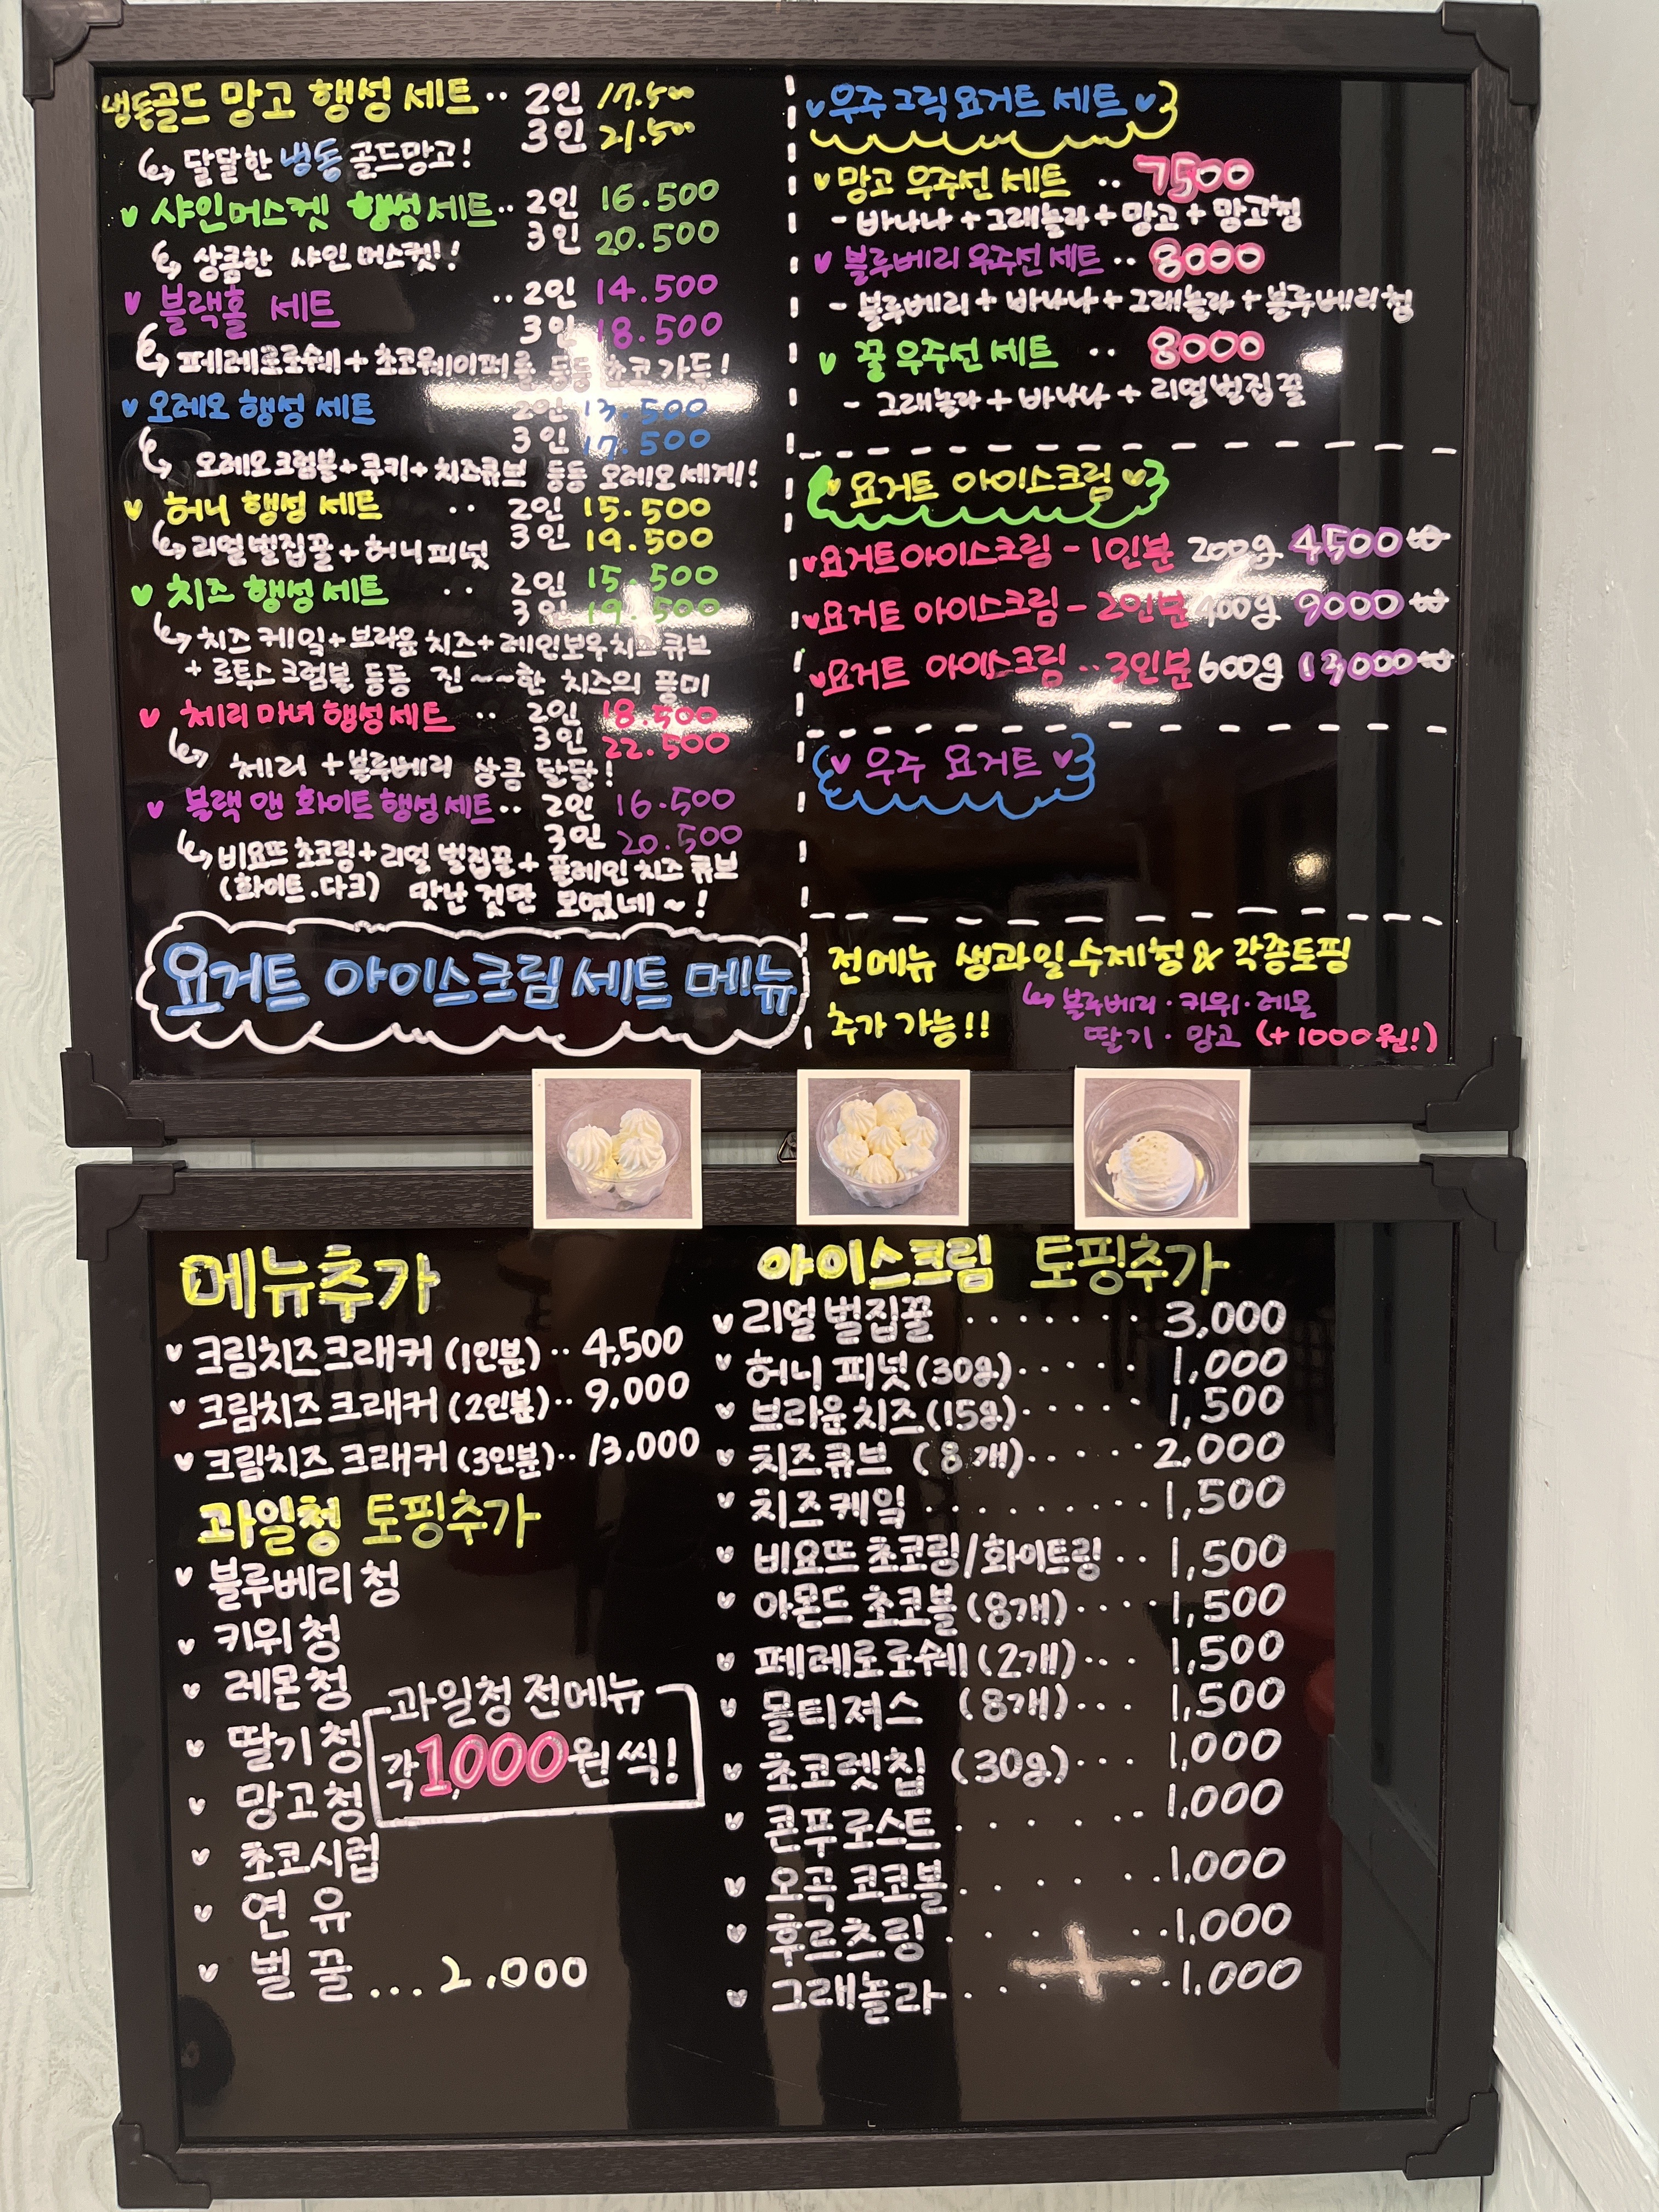 냉동골드 망고 행성 세트·· 2인 17.500
3인 21.500
달달한 냉동 골드망고!
샤인머스켓 행성세트·· 2인 16.500
3인 20.500
상큼한 샤인머스켓!
블랙홀 세트 ··2인 14.500
3인 18.500
페레로로쉐+초코웨이퍼롤 등등 초코 가득!
오레오 행성 세트 2인 13.500
3인 17.500
오레오크럼블+쿠키+치즈큐브 등등 오레오 세계!
허니 행성 세트 ·· 2인 15.500
3인 19.500
리얼벌집꿀+허니피넛
치즈 행성 세트 ·· 2인 15.500
3인 19.500
치즈 케익+브라운 치즈+레인보우치즈큐브
+로투스 크럼블 등등 진~~한 치즈의 풍미
체리 마녀 행성세트 ·· 2인 18.500
3인 22.500
체리+블루베리 상큼 달달!
블랙 앤 화이트 행성세트·· 2인 16.500
3인 20.500
비요뜨 초코링+리얼 벌집꿀+플레인 치즈 큐브
(화이트.다크) 맛난 것만 모였네~!
요거트 아이스크림 세트 메뉴
우주 그릭 요거트 세트
망고 우주선 세트 ·· 7500
- 바나나+그래놀라+망고+망고청
블루베리 우주선 세트·· 8000
- 블루베리+바나나+그래놀라+블루베리청
꿀 우주선 세트 ·· 8000
- 그래놀라+바나나+리얼벌집꿀
요거트 아이스크림
요거트아이스크림 - 1인분 200g 4500₩
요거트 아이스크림 - 2인분 400g 9000₩
요거트 아이스크림 ·· 3인분 600g 13,000₩
우주 요거트
전메뉴 생과일수제청 & 각종토핑
추가 가능!!
블루베리·키위·레몬
딸기·망고 (+1000원!)
메뉴추가
크림치즈크래커 (1인분)·· 4,500
크림치즈크래커 (2인분)·· 9,000
크림치즈크래커 (3인분)·· 13,000
과일청 토핑추가
블루베리 청
키위 청
레몬 청
딸기 청
망고 청
초코시럽
연유
벌꿀... 2.000
과일청 전메뉴
각 1,000원 씩!
아이스크림 토핑추가
리얼 벌집꿀 ······· 3,000
허니 피넛(30g)····· 1,000
브라운치즈(15g)····· 1,500
치즈큐브 (8개)····· 2,000
치즈케익 ········· 1,500
비요뜨 초코링/화이트링 ·· 1,500
아몬드 초코볼 (8개)···· 1,500
페레로로쉐(2개)··· 1,500
몰티져스 (8개) 1,500
초코렛칩 (30g)··· 1,000
콘푸로스트 ······ 1,000
오곡 코코볼 ······ 1,000
후르츠링 ······ 1,000
그래놀라 ····· 1,000